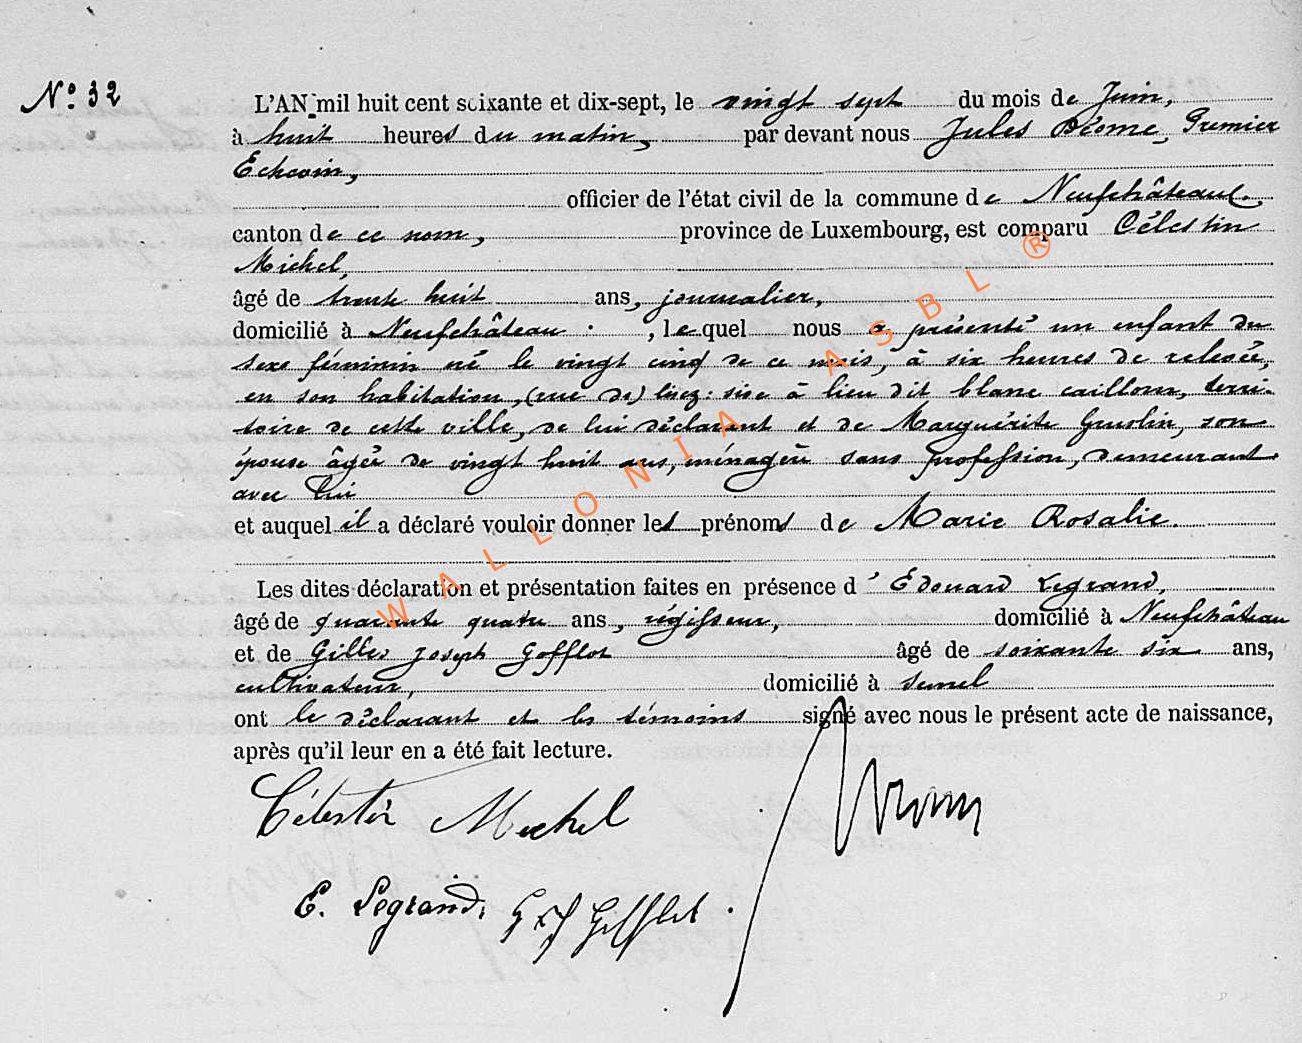 N° 32
L'AN mil huit cent soixante et dix-sept, le vingt sept du mois de Juin,
à huit heures du matin, par devant nous Jules Déome, Premier
Echevin,
officier de l'état civil de la commune de Neufchâteau.
canton de ce nom, province de Luxembourg, est comparu Célestin
Michel,
âgé de trente huit ans, journalier,
domicilié à Neufchâteau, lequel nous a présenté un enfant du
sexe féminin né le vingt cinq de ce mois, à six heures de relevée,
en son habitation, (rue de) lisez: sise à lieu dit blanc caillou, terri-
toire de cette ville, de lui déclarant et de Marguérite son
épouse âgée de vingt huit ans, ménagère sans profession, demeurant
avec lui
et auquel il a déclaré vouloir donner les prénoms de Marie Rosalie.
Les dites déclaration et présentation faites en présence d'Édouard Legrand,
âgé de quarante quatre ans, régisseur, domicilié à Neufchâteau
et de Gilles Joseph Gofflot âgé de soixante six ans,
cultivateur, domicilié à Semel
ont le déclarant et les témoins signé avec nous le présent acte de naissance,
après qu'il leur en a été fait lecture.
Célestin Michel
E. Legrand. Gofflot
WALLONIA ASBL ®